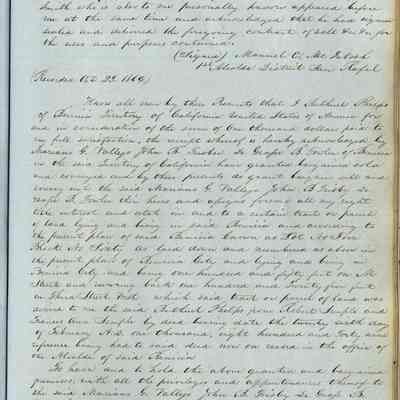 Smith who is also to me personally known appeared before
me at the same time and acknowledged that he had signed
sealed and delivered the foregoing contract of sale
the uses and purposes contained.
(Signed) Manuel C. McIntosh
1st Alcalde District San Rafael
(Recorded Oct 22. 1849)
Know all men by these Presents that I Bethuel Phelps
of Benicia Territory of California United States of America for
and in consideration of the sum of One thousand dollars paid to
me full satisfaction, the receipt whereof is hereby acknowledged by
Mariano G. Vallejo John B. Frisby De Grasse B. Fowler of Benicia
in the said Territory of California have granted bargained sold
and conveyed and by these presents do grant bargain sell and
convey unto the said Mariano G. Vallejo John B Frisby De
Grasse B. Fowler their heirs and assigns forever all my right
title interest and estate in and to a certain tract or parcel
of land lying and being in said Benicia and according to
the present plan of said Benicia known as Lot
Block No as laid down and numbered as above in
the present plan of Benicia City and lying and being in
Benicia City and being one hundred and fifty feet on
Street and running back one hundred and twenty five feet
on Third Street West which said tract or parcel of land was
deed to me the said Bethuel Phelps from Robert Semple and
Frances Ann Semple by deed bearing date the twenty sixth day
of February A.D. one thousand eight hundred and forty nine
reference being had to said deed now on record in the office of
the Alcalde of said Benicia
To have and to hold the above granted and bargained
premises with all the privileges and appurtenances thereof to
the said Mariano G. Vallejo John B. Frisby De Grasse B.